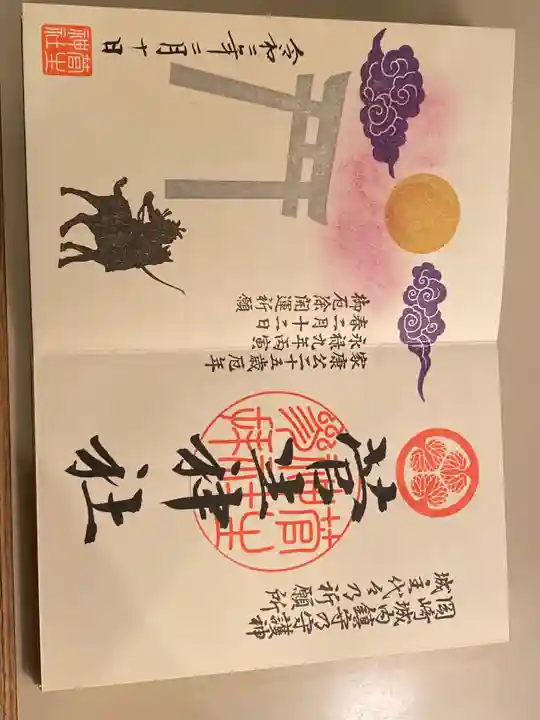 岡崎城内鎮守乃守護神
城主代々乃祈願所
菅生神社
家康公二十五歳厄年
永禄九年丙寅
春二月十二日
御厄除開運祈願
令和三年三月十日
菅生神社